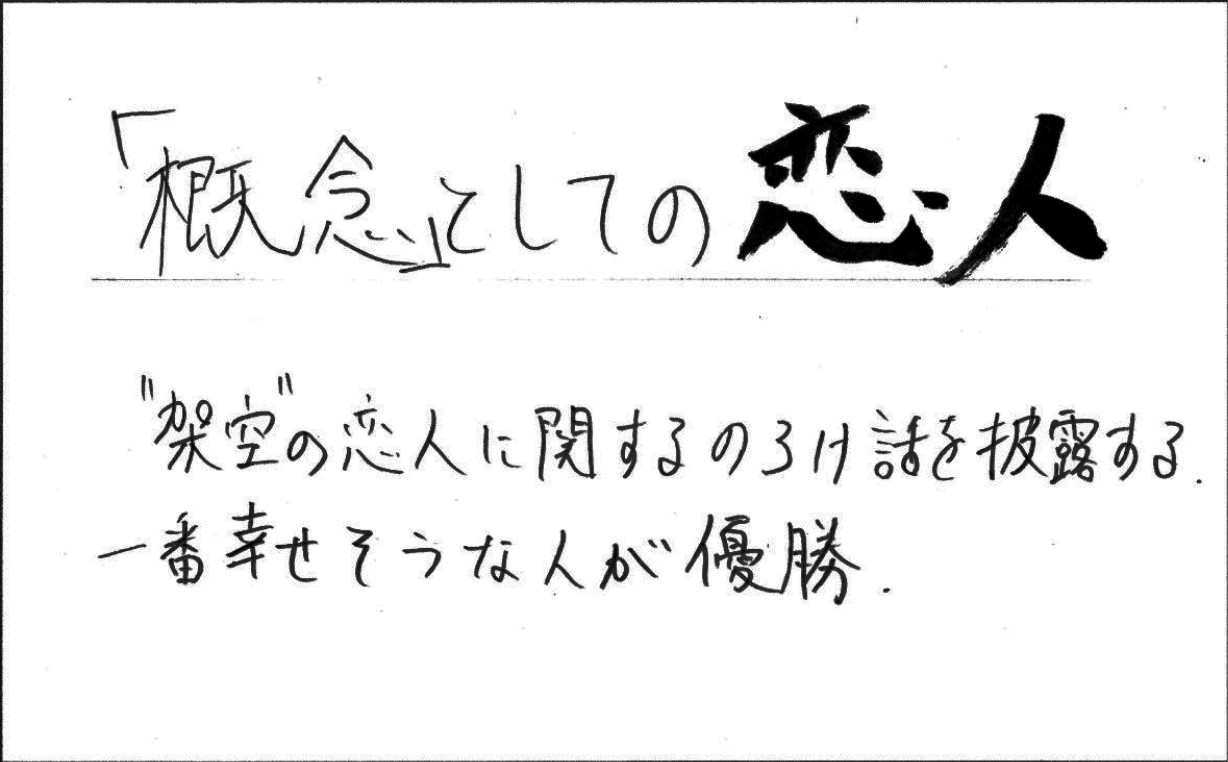 「概念」としての恋人
"架空"の恋人に関するのろけ話を披露する.
一番幸せそうな人が優勝.